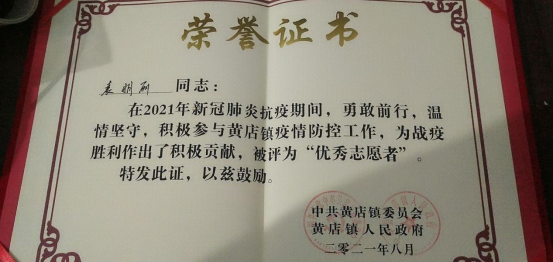 荣誉证书
袁明丽 同志：
在2021年新冠肺炎抗疫期间，勇敢前行，温
情坚守，积极参与黄店镇疫情防控工作，为战疫
胜利作出了积极贡献，被评为“优秀志愿者”。
特发此证，以兹鼓励。
中共黄店镇委员会
黄店镇人民政府
二零二一年八月